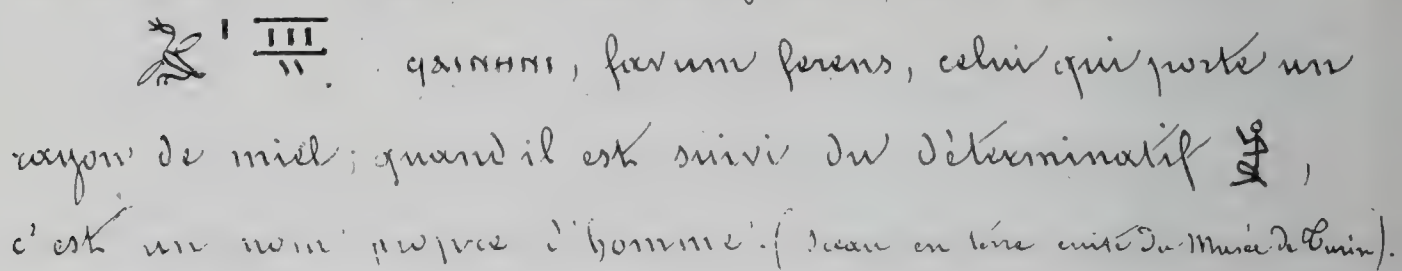 ϥⲁⲓⲛⲏⲛⲓ, favum ferens, celui qui porte un
rayon de miel; quand il est suivi du déterminatif ,
c'est un nom propre d'homme. (Sceau en terre cuite du Musée de Turin).